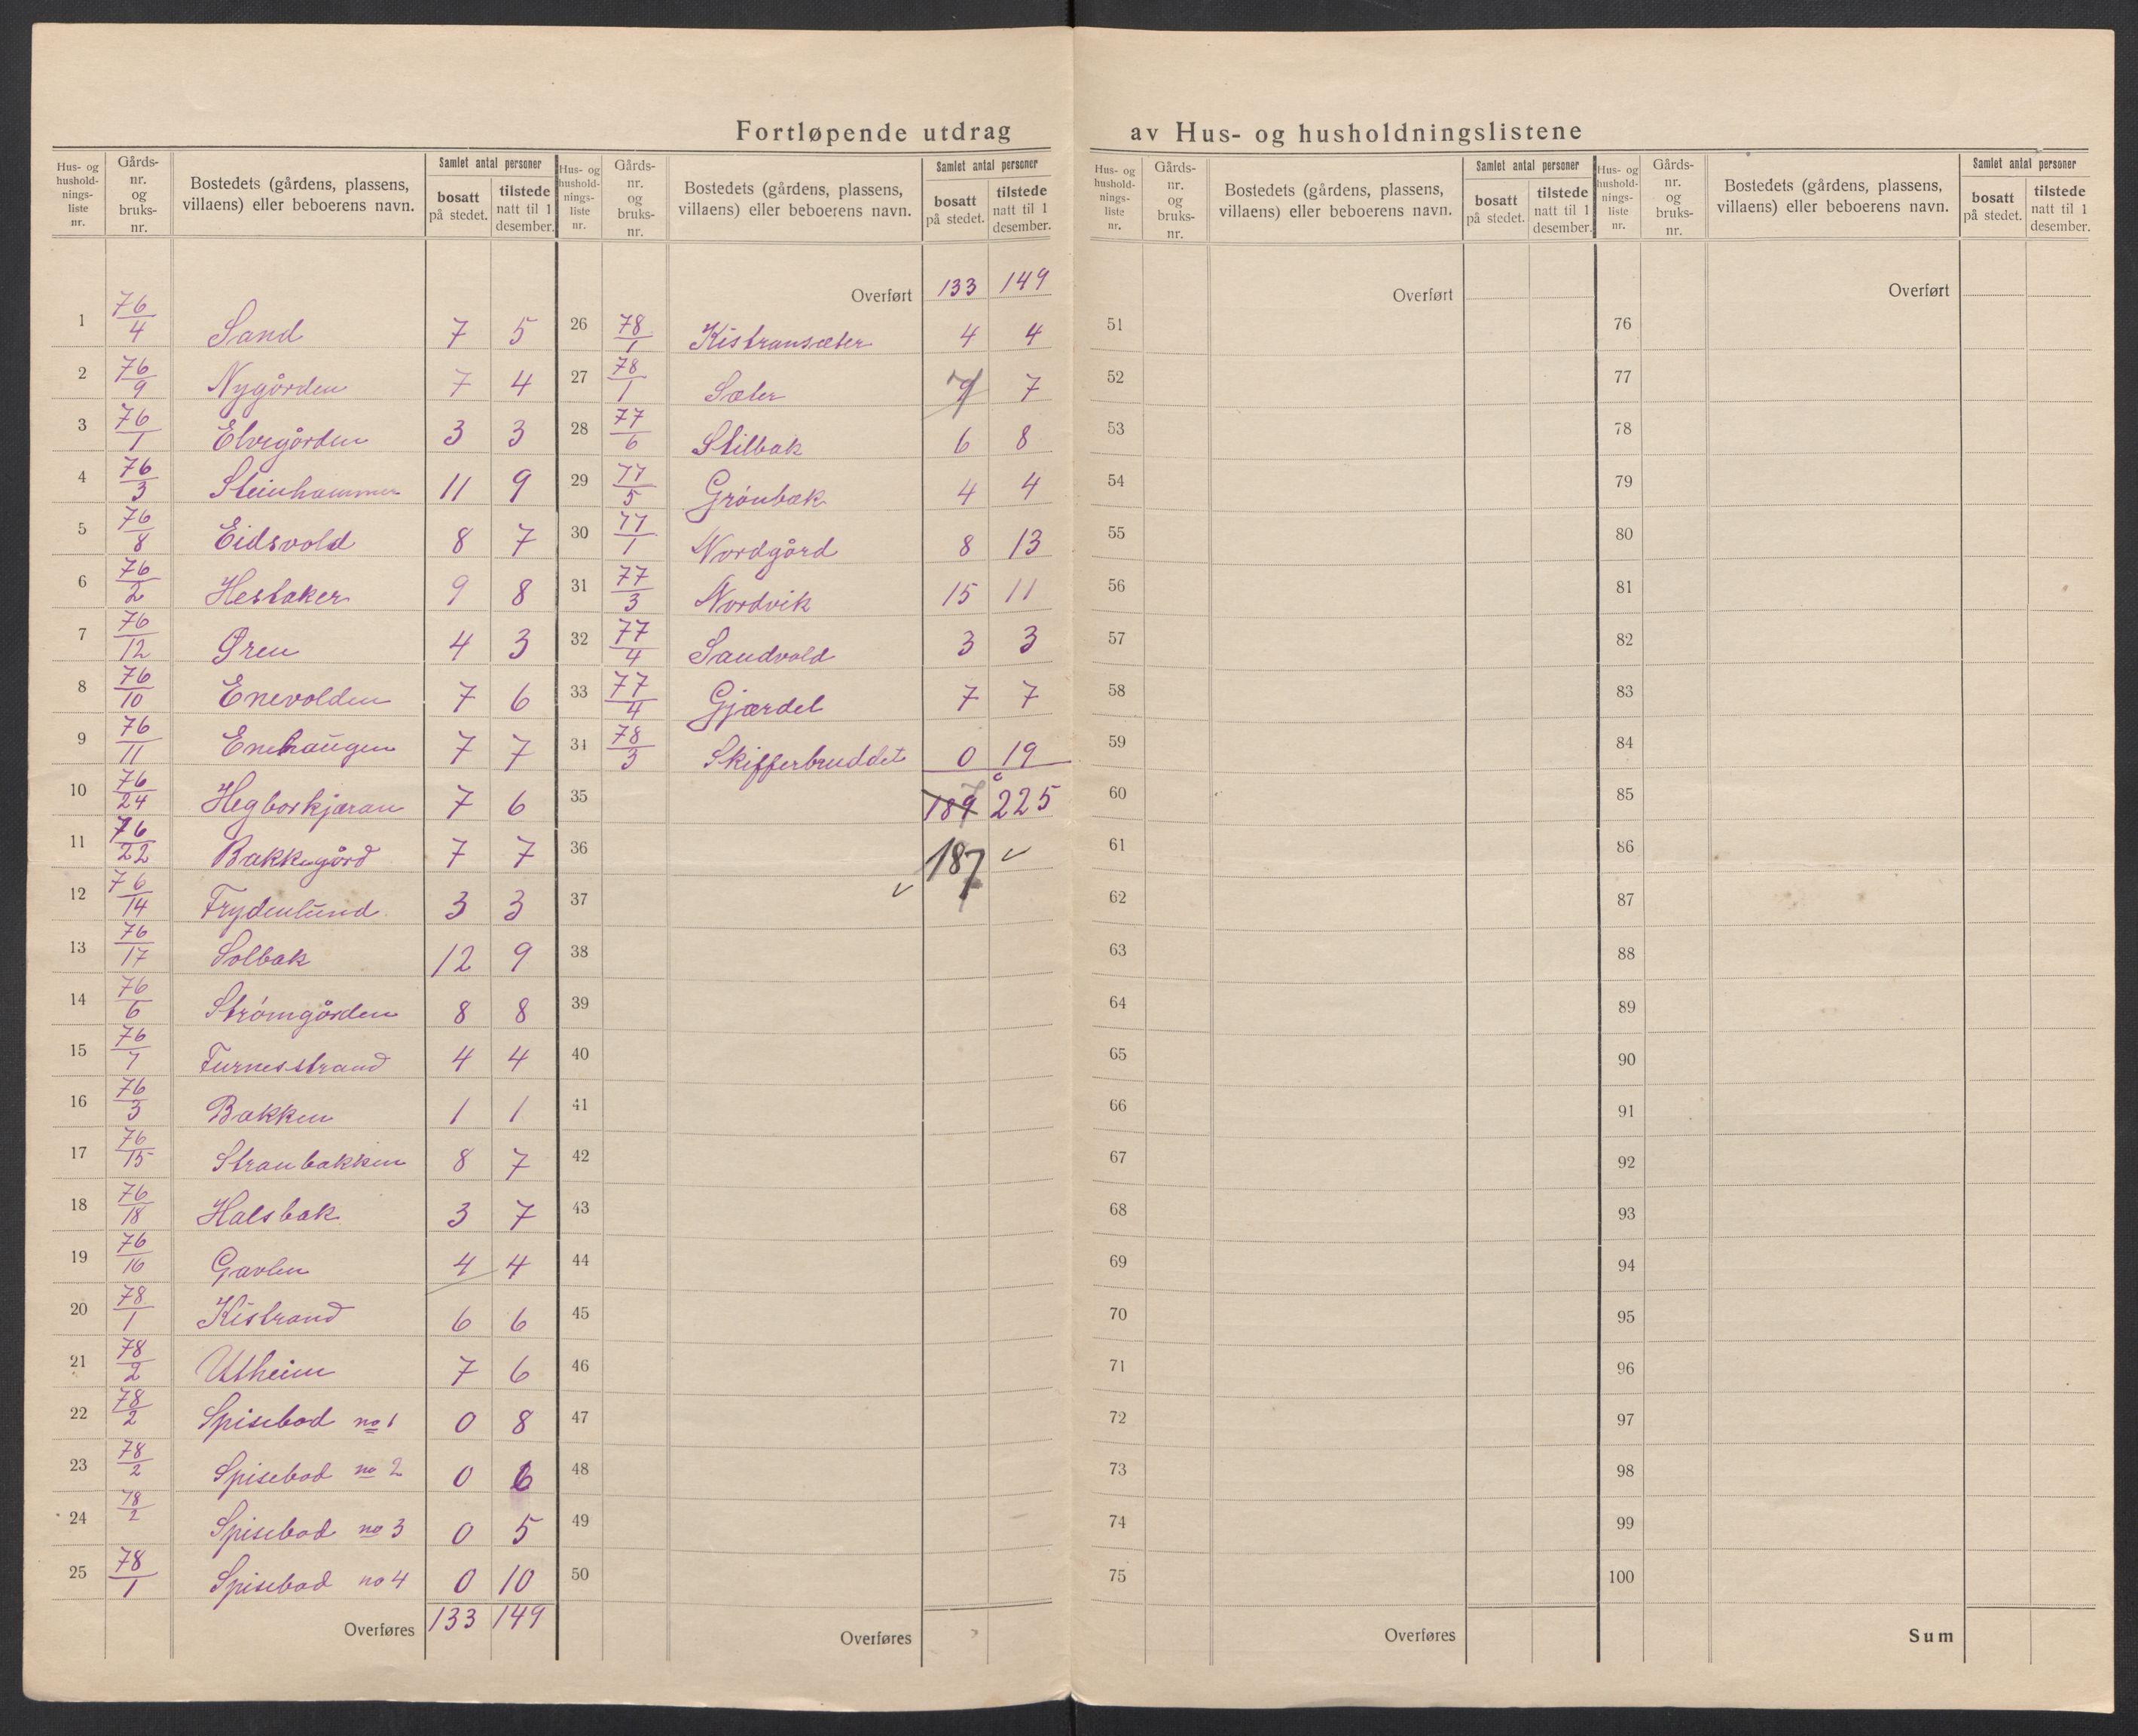 Fortløpende utdrag av Hus- og husholdningslistene
Hus- og hushold- nings- liste nr. Gårds- nr. og bruks- nr. Bostedets (gårdens, plassens, villaens) eller beboerens navn. Samlet antal personer bosatt på stedet. tilstede natt til 1 desember.
1 76/4 Sand 7 5
2 76/9 Nygården 7 4
3 76/1 Elvegården 3 3
4 76/3 Steinhammer 11 9
5 76/8 Eidsvold 8 7
6 76/2 Hestaker 9 8
7 76/12 Øren 4 3
8 76/10 Enevolden 7 6
9 76/11 Enehaugen 7 7
10 76/24 Hegborkjæran 7 6
11 76/22 Bakkegård 7 7
12 76/14 Frydenlund 3 3
13 76/17 Solbak 12 9
14 76/6 Strømgården 8 8
15 76/7 Furnesstrand 4 4
16 76/3 Bakken 1 1
17 76/15 Stranbakken 8 7
18 76/18 Halsbak 3 7
19 76/16 Gavlen 4 4
20 78/1 Kistrand 6 6
21 78/2 Utheim 7 6
22 78/2 Spisebod no 1 0 8
23 78/2 Spisebod no 2 0 6
24 78/2 Spisebod no 3 0 5
25 78/1 Spisebod no 4 0 10
Overføres 133 149
Hus- og hushold- nings- liste nr. Gårds- nr. og bruks- nr. Bostedets (gårdens, plassens, villaens) eller beboerens navn. Samlet antal personer bosatt på stedet. tilstede natt til 1 desember.
Overført 133 149
26 78/1 Kistransæter 4 4
27 78/1 Sæter 7
28 77/6 Stilbak 6 8
29 77/5 Grønbæk 4 4
30 77/1 Nordgård 8 13
31 77/3 Nordvik 15 11
32 77/4 Sandvold 3 3
33 77/4 Gjærdet 7 7
34 78/3 Skifferbruddet 0 19
35 189 225
36 187
37
38
39
40
41
42
43
44
45
46
47
48
49
50
Overføres
Hus- og hushold- nings- liste nr. Gårds- nr. og bruks- nr. Bostedets (gårdens, plassens, villaens) eller beboerens navn. Samlet antal personer bosatt på stedet. tilstede natt til 1 desember.
Overført
51
52
53
54
55
56
57
58
59
60
61
62
63
64
65
66
67
68
69
70
71
72
73
74
75
Overføres
Hus- og hushold- nings- liste nr. Gårds- nr. og bruks- nr. Bostedets (gårdens, plassens, villaens) eller beboerens navn. Samlet antal personer bosatt på stedet. tilstede natt til 1 desember.
Overført
76
77
78
79
80
81
82
83
84
85
86
87
88
89
90
91
92
93
94
95
96
97
98
99
100
Sum